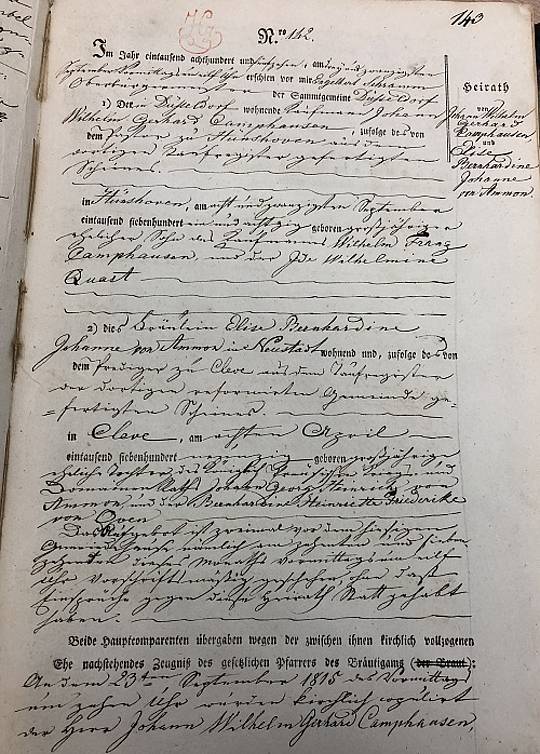 143
N.ro 142.
Im Jahr eintausend achthundert und fünfzehn, am drey und zwanzigsten
September Vormittags um eilf Uhr erschien vor mir Engelbert Schramm
Oberbürgermeister der Sammtgemeine Düsseldorf
1) Der in Düsseldorf wohnende Kaufmann Johann
Wilhelm Gerhard Camphausen, zufolge des von
dem Pastor zu Hünshoven aus dem
dortigen Taufregister gefertigten
Scheines.
in Hünshoven, am acht und zwanzigsten September
eintausend siebenhundert ein und achtzig geboren großjähriger
ehelicher Sohn des Kaufmanns Wilhelm
Camphausen, und der Ida Wilhelmine
Quart
2) die Fräulein Elise Bernhardine
Johanne von Ammon in Neustadt wohnend und, zufolge des von
dem Prediger zu Cleve aus dem Taufregister
der dortigen reformirten Gemeinde ge-
=fertigten Scheines.
in Cleve, am achten April
eintausend siebenhundert neunzig geboren großjährige
eheliche Tochter des Königlich Preußischen Kriegs und
Domainen Raths Johann Georg Heinrich von
Ammon, und der Bernhardine Henriette Friederike
von Oven
Das Aufgebot ist zweimal vor dem hiesigen
Gemeinde Hause nämlich am zehnten und sieben-
zehnten dieses Monats Vormittags um eilf
Uhr vorschriftsmäßig geschehen, ohne daß
Einsprüche gegen diese Heirath Statt gehabt
haben.
Beide Hauptcomparenten übergaben wegen der zwischen ihnen kirchlich vollzogenen
Ehe nachstehendes Zeugniß des gesetzlichen Pfarrers des Bräutigams (der Braut):
An dem 23ten September 1815 des Vormittags
um zehn Uhr wurden kirchlich copulirt
der Herr Johann Wilhelm Gerhard Camphausen,
Heirath
von
Johann Wilhelm
Gerhard
Camphausen
und
Elise
Bernhardine
Johanne
von Ammon.